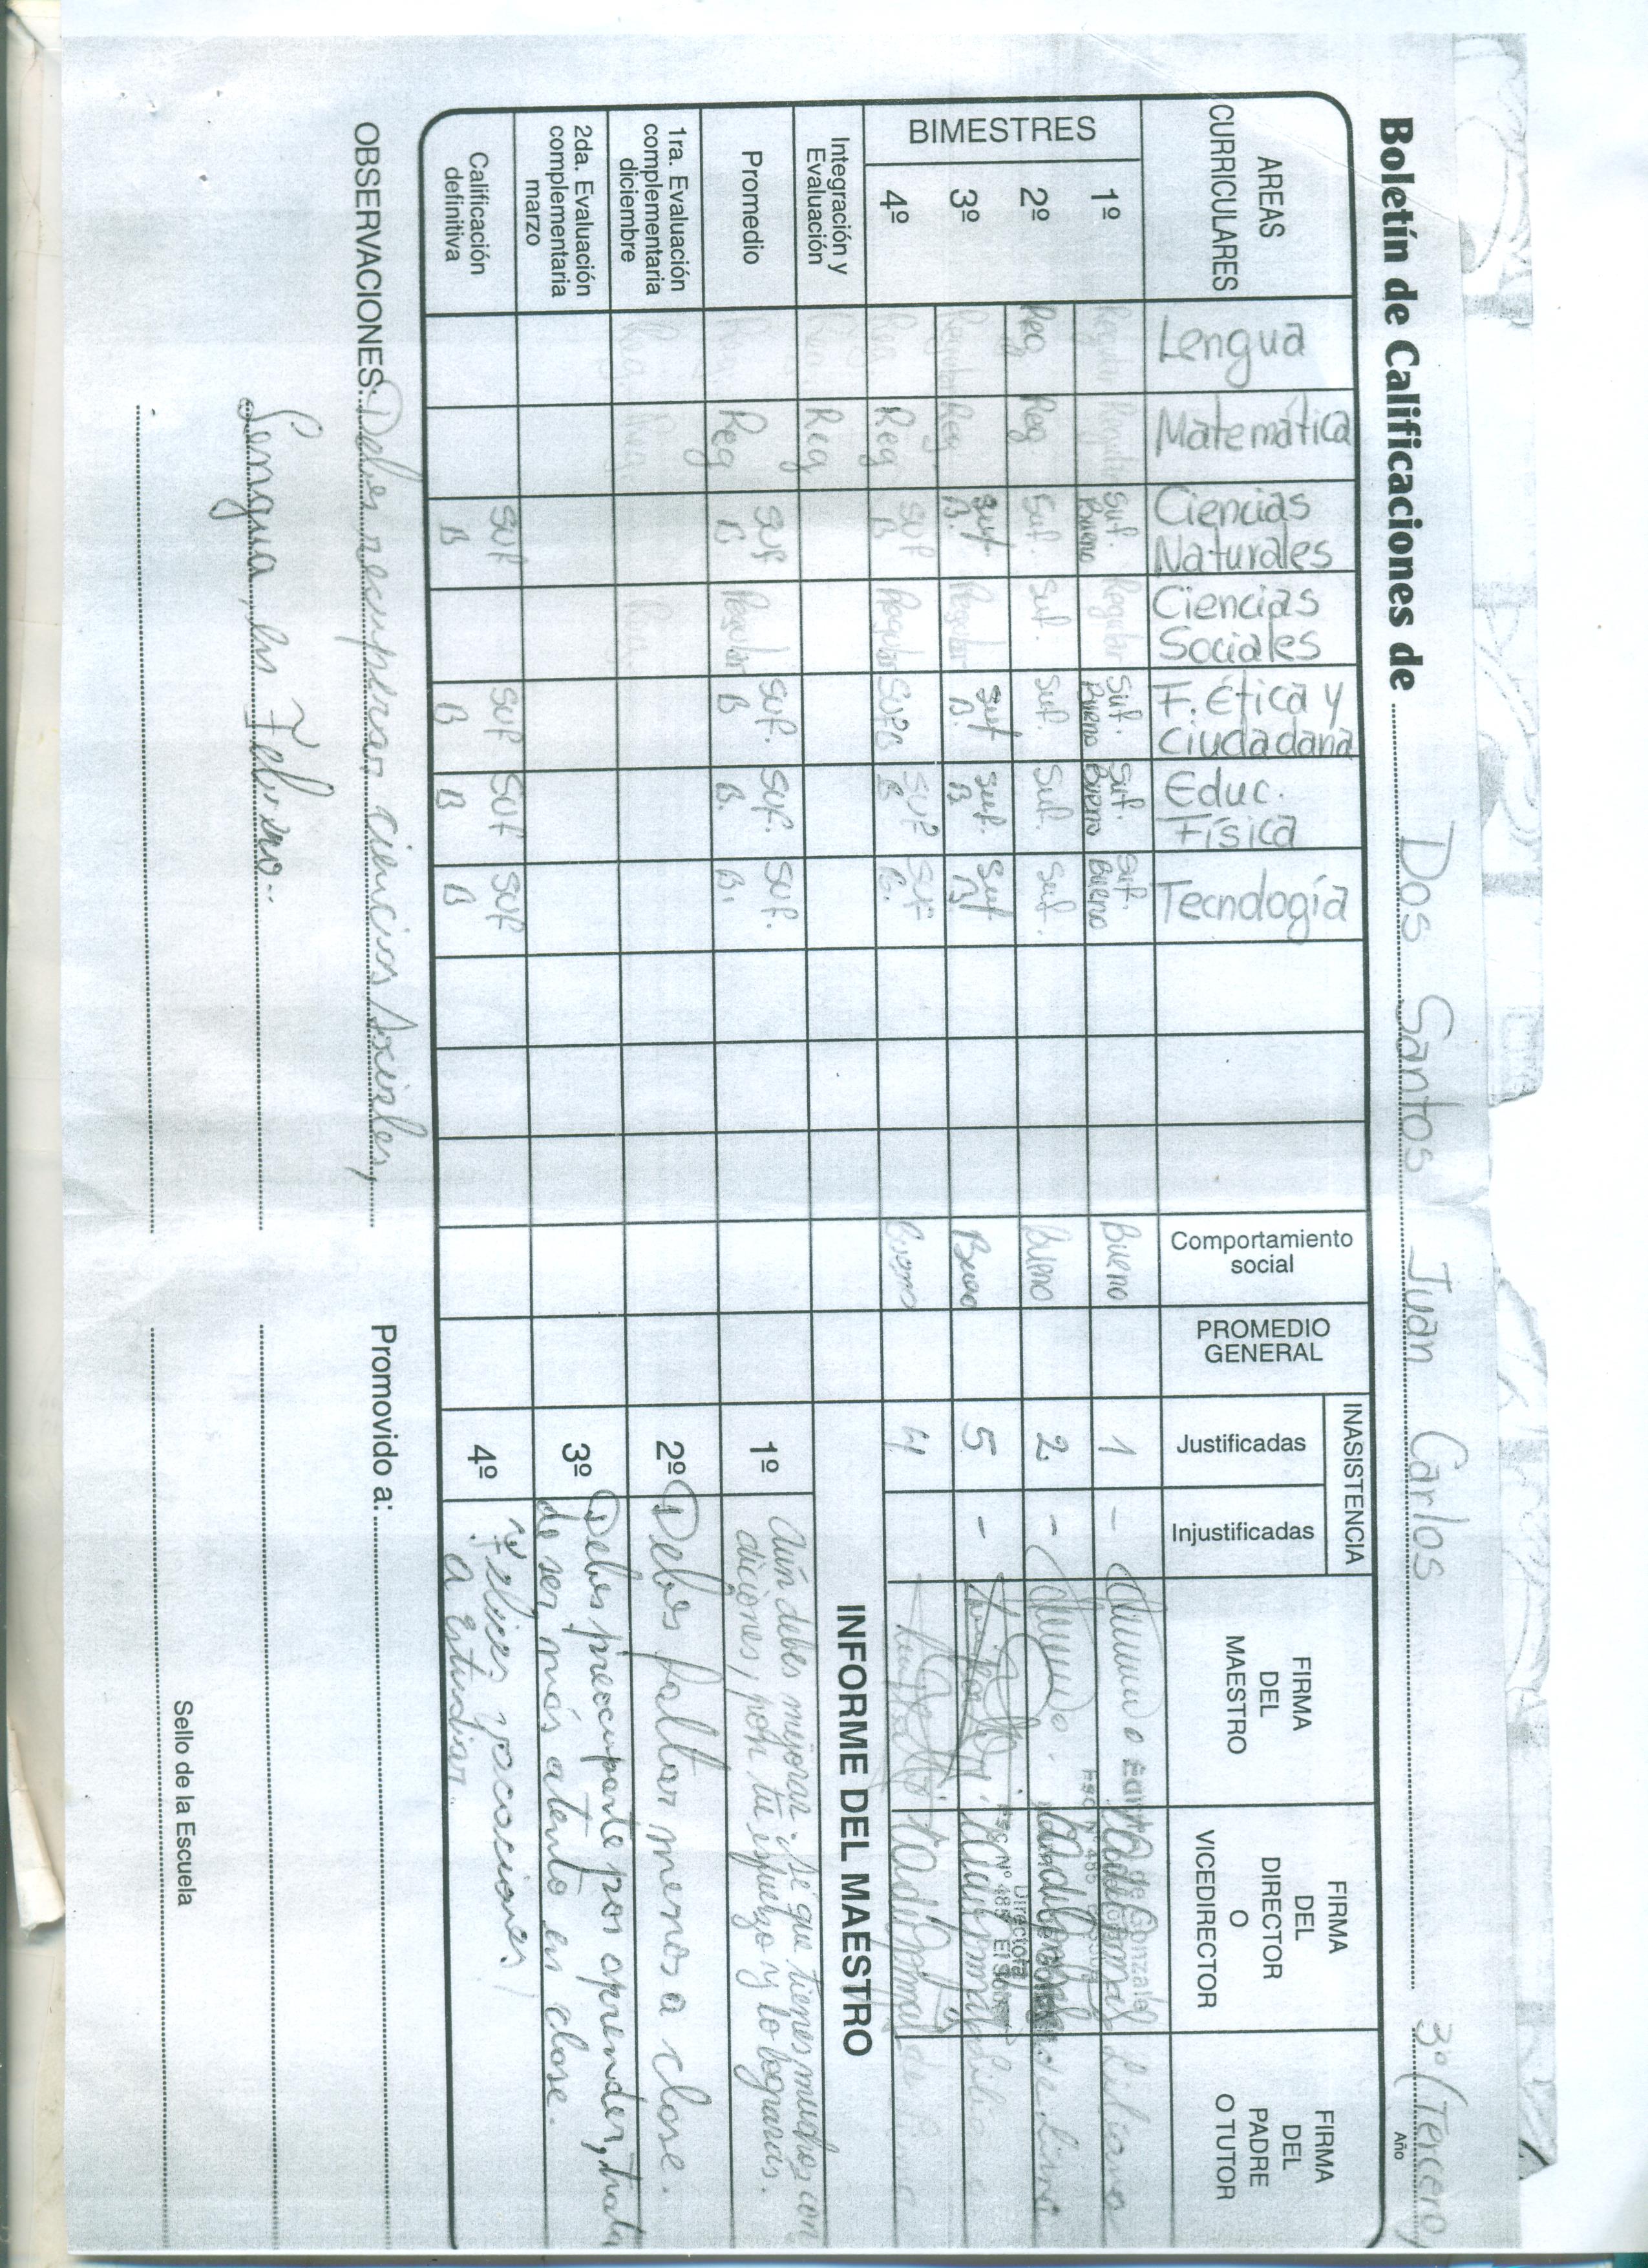 Boletín de Calificaciones de Dos Santos Juan Carlos 3º (Tercero)
Año
AREAS CURRICULARES Lengua Matemática Ciencias Naturales Ciencias Sociales F. Ética y Ciudadana Educ. Física Tecnología Comportamiento social PROMEDIO GENERAL INASISTENCIA Justificadas Injustificadas FIRMA DEL MAESTRO FIRMA DEL DIRECTOR O VICEDIRECTOR FIRMA DEL PADRE O TUTOR
BIMESTRES
1º Regular Regular Suf. Bueno Regular Suf. Bueno Suf. Bueno Suf. Bueno Bueno 1 -
2º Reg Reg Suf. Suf. Suf. Suf. Suf. Bueno 2 -
3º Regular Reg. Suf. B. Regular Suf B. Suf. B. Suf B. Bueno 5 -
4º Reg Reg Suf B Regular Suf B Suf B Suf B. Bueno 4
Integración y Evaluación Reg
Promedio Reg. Reg Suf B Regular Suf. B Suf. B. Suf. B.
1ra. Evaluación complementaria diciembre
2da. Evaluación complementaria marzo
Calificación definitiva Suf B Suf B Suf B Suf B
INFORME DEL MAESTRO
1º Aún debes mejorar. Sé que tienes muchas con
diciones, pon tu esfuerzo y lo lograrás.
2º Debes faltar menos a clase.
3º Debes preocuparte por aprender, trata
de ser más atento en clase.
4º ¡Felices vacaciones!
a Estudiar.
OBSERVACIONES: Debes recuperar ciencias sociales,
Lengua, en Febrero.
Promovido a:
Sello de la Escuela